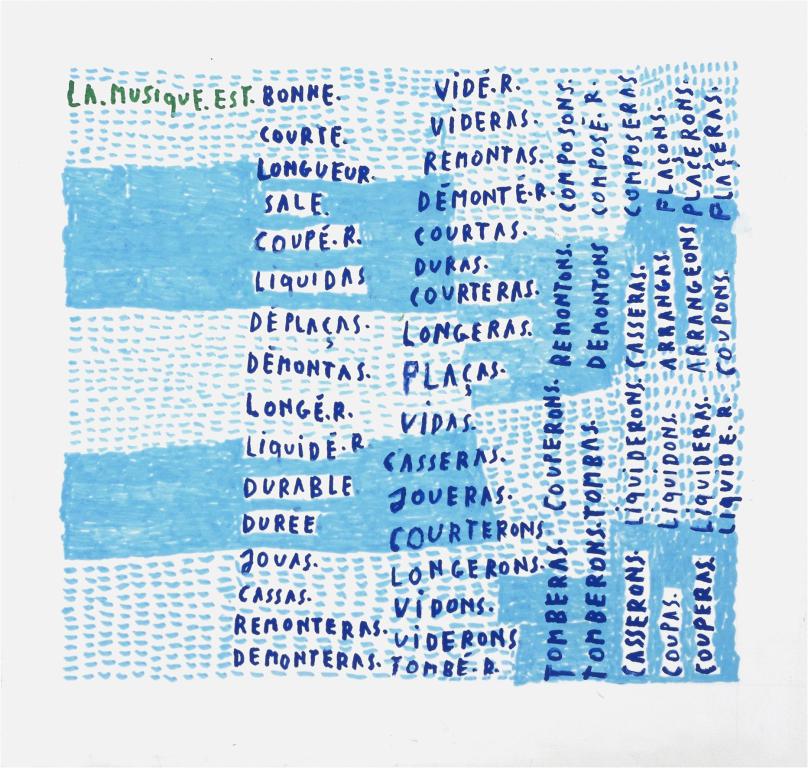 LA.MUSIQUE.EST.BONNE.
COURTE.
LONGUEUR.
SALE.
COUPÉ.R.
LIQUIDAS
DÉPLAÇAS.
DÉMONTAS.
LONGÉ.R.
LIQUIDÉ.R
DURABLE
DURÉE
JOUAS.
CASSAS.
REMONTERAS.
DEMONTERAS.
VIDÉ.R.
VIDERAS.
REMONTAS.
DÉMONTÉ.R.
COURTAS.
DURAS.
COURTERAS.
LONGERAS.
PLAÇAS.
VIDAS.
CASSERAS.
JOUERAS.
COURTERONS.
LONGERONS.
VIDONS.
VIDERONS
TOMBÉ.R.
TOMBERAS. COUPERONS. REMONTONS. COMPOSONS.
TOMBERONS.TOMBAS. DEMONTONS COMPOSÉ.R.
CASSERONS. LIQUIDERONS. CASSERAS. COMPOSERAS
COUPAS. LIQUIDONS. ARRANGAS. PLAÇONS.
COUPERAS. LIQUIDERAS. ARRANGEONS PLAÇERONS.
LIQUIDE.R. COUPONS. PLAÇERAS.